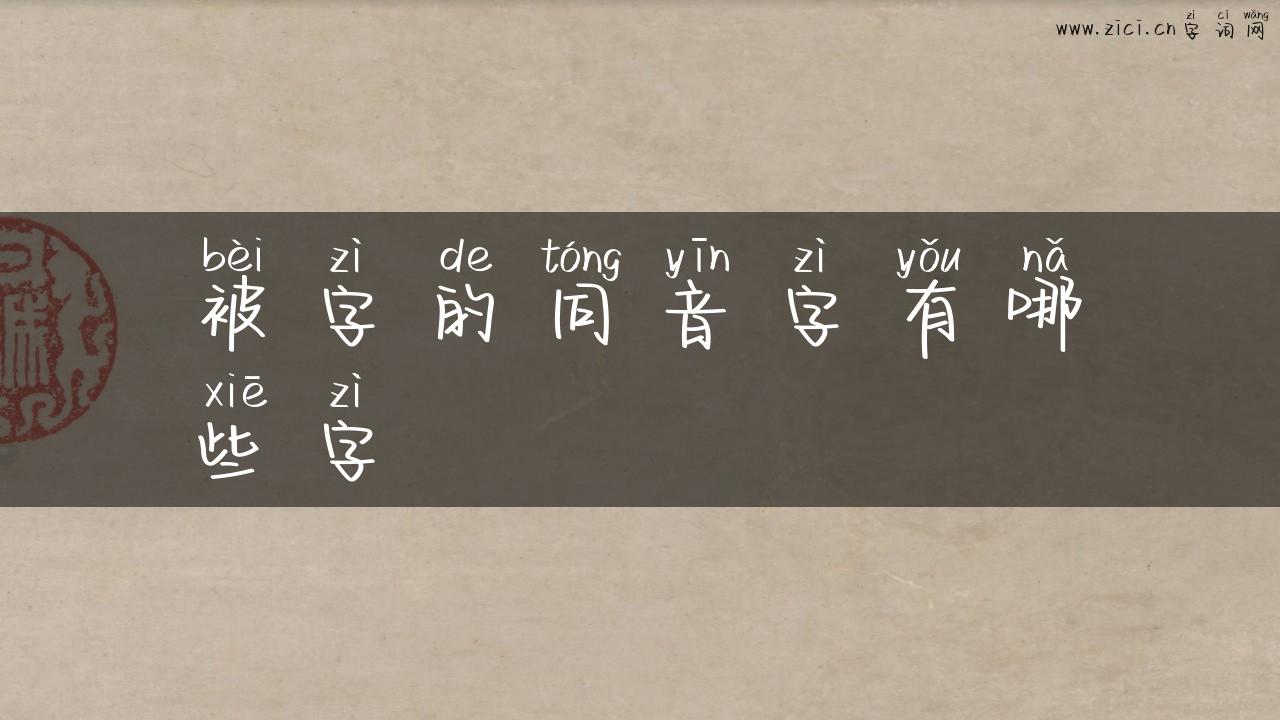 zì cí wǎng
www.zici.cn 字词网
bèi zì de tóng yīn zì yǒu nǎ
被字的同音字有哪
xiē zì
些字